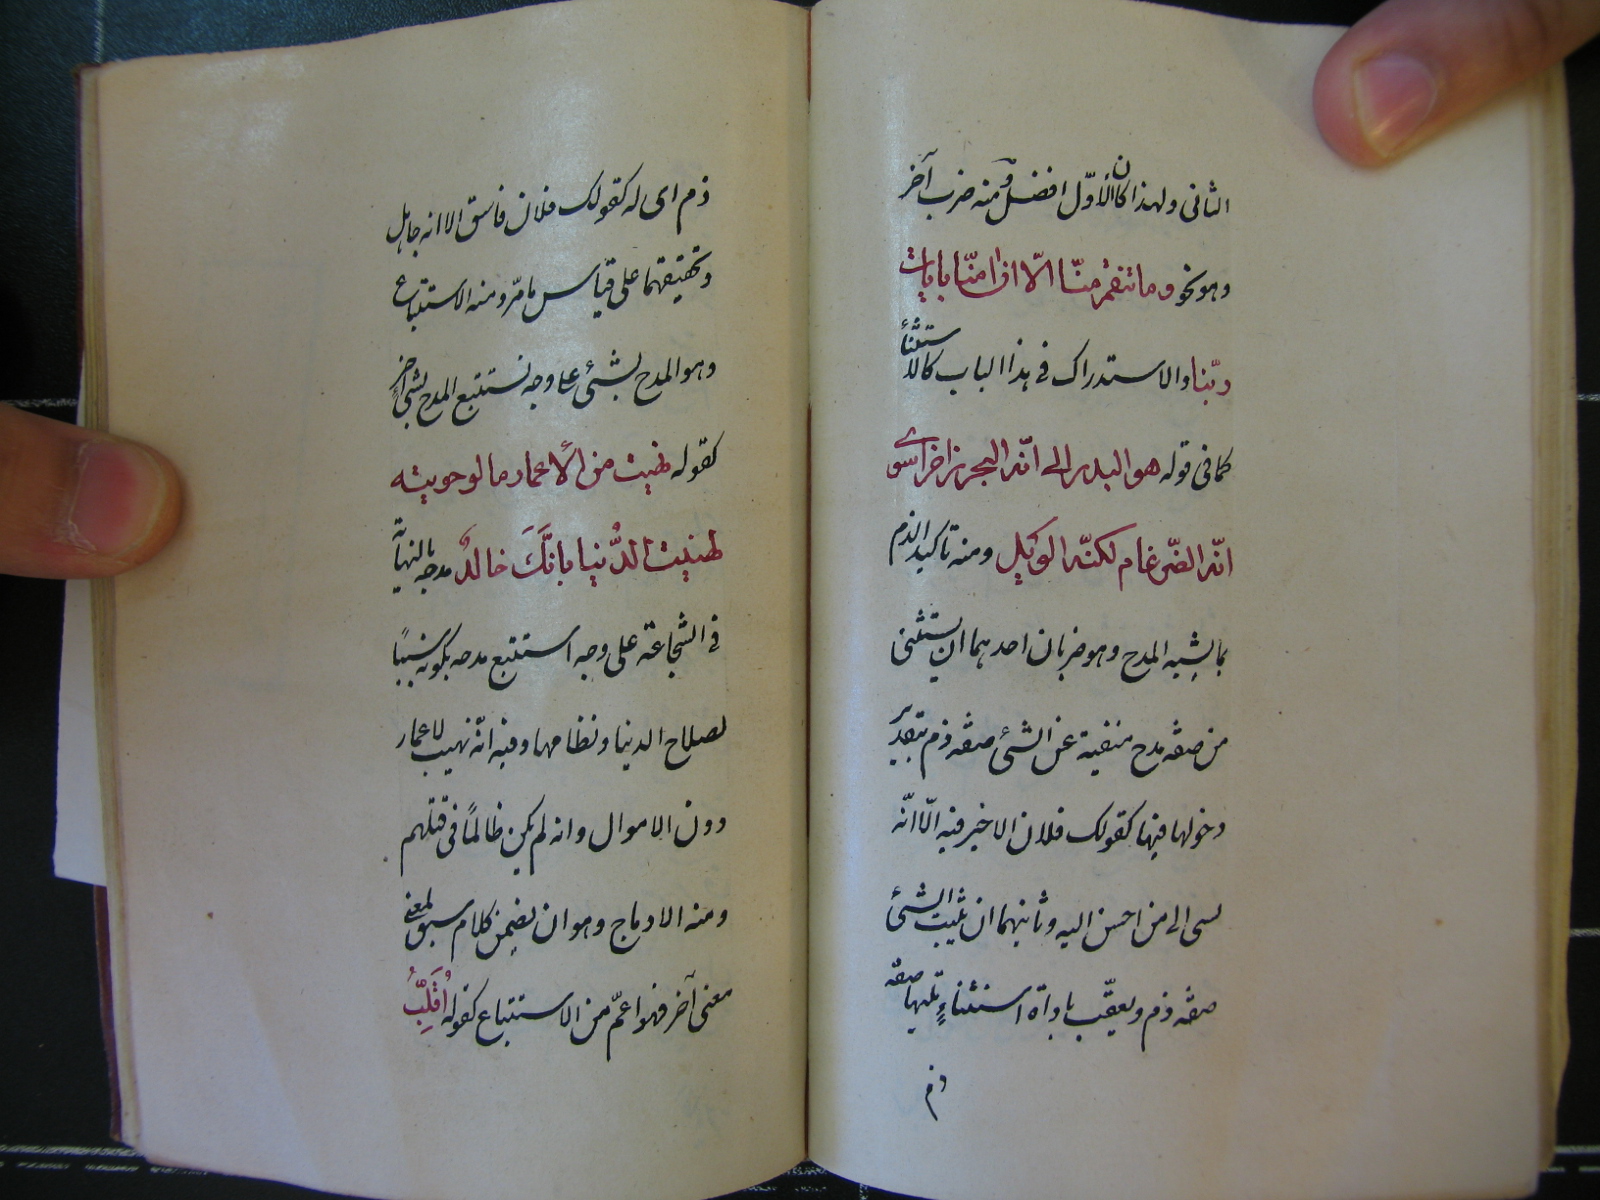 الثانی ولهذا کان الأوّل افضل ومنه ضرب آخر
وهو نحو وما تنقم منّا الّا ان امنّا بایات
ربّنا والاستدراک فی هذا الباب کالاستثناء
کما فی قوله هو البدر الی انّه البحر زاخرا سوی
انّه الضّرغام لکنّه الوبل ومنه تاکید الذم
بما یشبه المدح وهو ضربان احدهما ان یستثنی
من صفه مدح منفیة عن الشئ صفه ذم بتقدیر
دخولها فیها کقولک فلان لا خیر فیه الّا انّه
یسی الی من احسن الیه وثانیهما ان یثبت الشئ
صفه ذم ویعقّب باداة استثناءٍ تلیها صفه
ذم
ذم ای له کقولک فلان فاسق الا انه جاهل
وتحقیقهما علی قیاس ما مرّ ومنه الاستتباع
وهو المدح بشئ علی وجه تستتبع المدح بشئ آخر
کقوله نهبت من الأعمار ما لو حویته
لهنیت الدُّنیا بانَّکَ خالدٌ مدحه بالنهایة
فی الشجاعة علی وجه استتبع مدحه بکونه سببًا
لصلاح الدنیا ونظامها وفیه انّه نهب الاعمار
دون الاموال وانه لم یکن ظالمًا فی قتلهم
ومنه الادماج وهو ان یضمن کلام سبق لمعنی
معنی آخر فهو اعمّ من الاستتباع کقوله اُقَلِّبُ